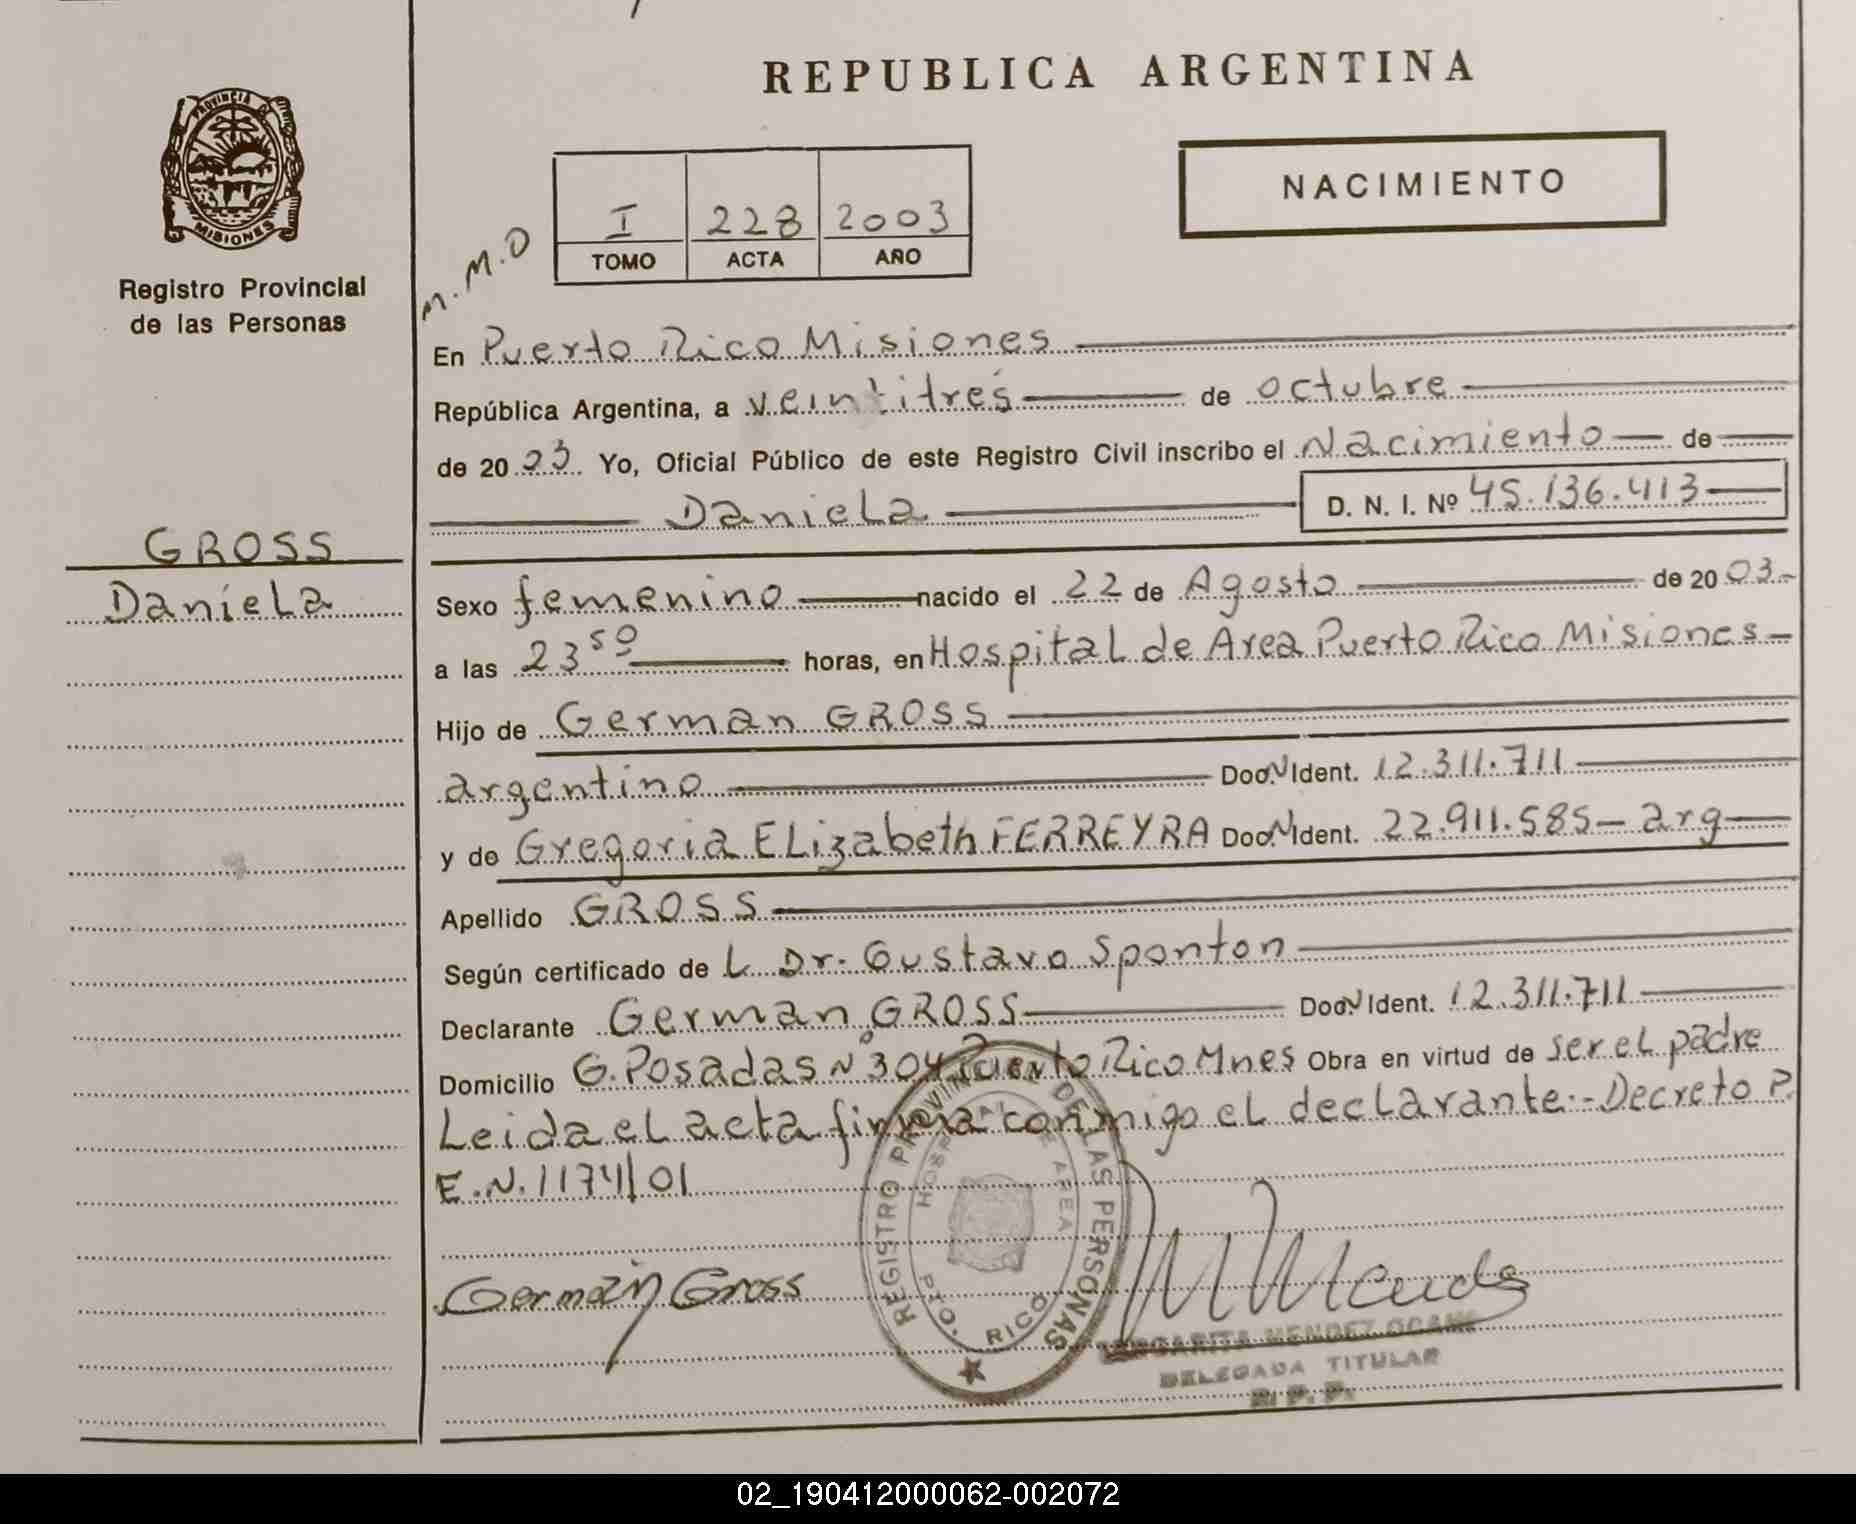 REPUBLICA ARGENTINA
PROVINCIA DE
MISIONES
Registro Provincial
de las Personas
NACIMIENTO
I 228 2003
TOMO ACTA AÑO
M.M.O
En Puerto Rico Misiones
República Argentina, a veintitrés de octubre
de 20 03 Yo, Oficial Público de este Registro Civil inscribo el Nacimiento de
Daniela D. N. I. Nº 45.136.413
GROSS
Daniela
Sexo femenino nacido el 22 de Agosto de 20 03.-
a las 23 50 horas, en Hospital de Area Puerto Rico Misiones-
Hijo de German GROSS
argentino Doc.N Ident. 12.311.711
y de Gregoria Elizabeth FERREYRA Doc.N Ident. 22.911.585- arg
Apellido GROSS
Según certificado de L Dr. Gustavo Sponton
Declarante German GROSS Doc.N Ident. 12.311.711
Domicilio G. Posadas Nº 304 Puerto Rico Mnes Obra en virtud de ser el padre
Leida el acta firma conmigo el declarante.- Decreto P.
E.N. 1174/01
Germán Gross
REGISTRO PROVINCIAL DE LAS PERSONAS
HOSPITAL DE AREA
PTO. RICO
MARGARITA MENDEZ OCAMPO
DELEGADA TITULAR
R. P. P.
02_190412000062-002072